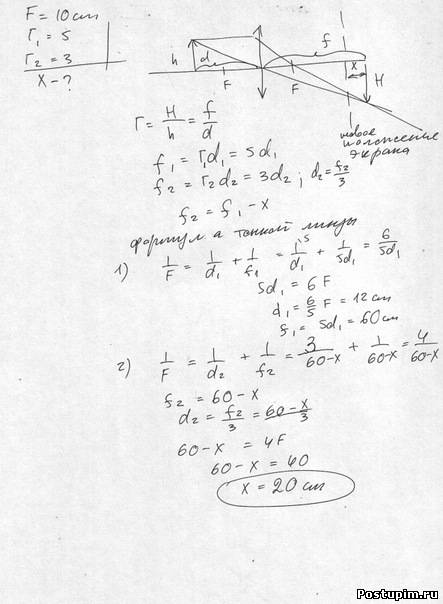 F = 10 см
Г₁ = 5
Г₂ = 3
X - ?
h d F F f x H
новое
положение
экрана
Г = H/h = f/d
f₁ = Г₁d₁ = 5d₁
f₂ = Г₂d₂ = 3d₂ ; d₂ = f₂/3
f₂ = f₁ - x
формула тонкой линзы
1) 1/F = 1/d₁ + 1/f₁ = 1/d₁ + 1/5d₁ = 6/5d₁
5d₁ = 6F
d₁ = 6/5 F = 12 см
f₁ = 5d₁ = 60 см
2) 1/F = 1/d₂ + 1/f₂ = 3/60-x + 1/60-x = 4/60-x
f₂ = 60 - x
d₂ = f₂/3 = 60-x/3
60 - x = 4F
60 - x = 40
x = 20 см
Postupim.ru